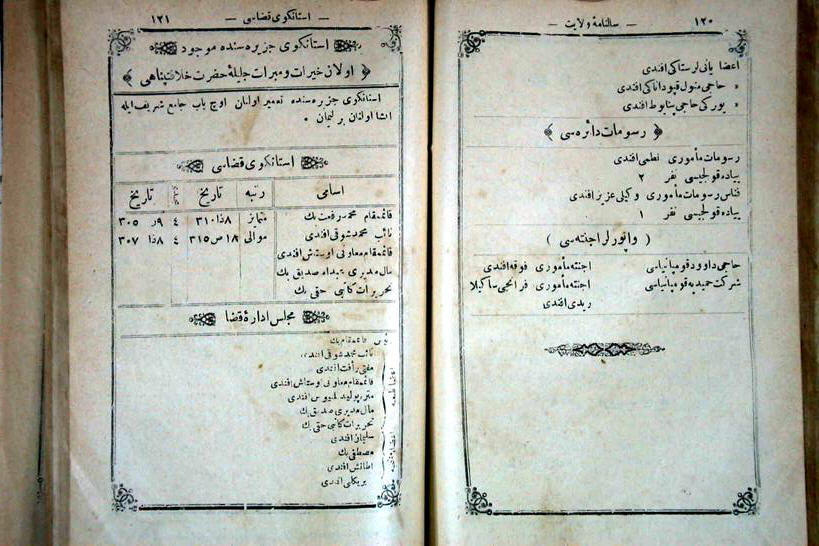 ١٢٠
— سالنامهٔ ولایت —
اعضا یانی لرستاکی افندی
» حاجی منول قپودانا کی افندی
» یورکی حاجی پنابوط افندی
﴿ رسومات دائره سی ﴾
رسومات مأموری نطمی افندی
پیاده قولجیسی نفر ٢
قناس رسومات مأموری وکیلی عزیز افندی
پیاده قولجیسی نفر ١
( واپورلر اجنته سی )
حاجی داوود قومپانیاسی اجنته مأموری فوقه افندی
شرکت حمیدیه قومپانیاسی اجنته مأموری فرانجی ساکیلا
ریدی افندی
— استانکوی قضاسی —
١٢١
استانکوی جزیره سنده موجود
﴿ اولان خیرات و مبرات جلیلهٔ حضرت خلافتپناهی ﴾
استانکوی جزیره سنده تعمیر اولنان اوچ باب جامع شریف ایله
انشا اولنان بر لیمان ٠
استانکوی قضاسی
اسامی رتبه تاریخ تاریخ
قائممقام محمد رفعت بك متمایز ٨ ذا ٣١٠ ٤ ٩ ر ٣٠٥
نائب محمد شوقی افندی موالی ١٨ ص ٣١٥ ٤ ٨ ذا ٣٠٧
قائممقام معاونی اوستاش افندی
مال مدیری عبدالله صدیق بك
تحریرات کاتبی حقی بك
مجلس ادارهٔ قضا
قائممقام بك
نائب محمد شوقی افندی
مفتی رأفت افندی
قائممقام معاونی اوستاش افندی
متره پولید افندی
مال مدیری صدیق بك
تحریرات کاتبی حقی بك
سلیمان افندی
مصطفی بك
اطانش افندی
افندی